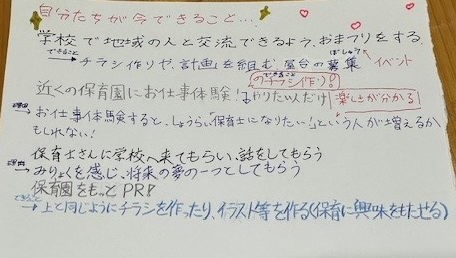 自分たちが今できること…
学校で地域の人と交流できるよう、おまつりをする。
できること→チラシ作りや、計画を組む 屋台の募集 ばしょう イベント
のチラシ作り!
近くの保育園にお仕事体験!やりたい人だけ 楽しさが分かる
理由→お仕事体験すると、「しょうらい保育士になりたい」という人が増えるか
もしれない!
保育士さんに学校へ来てもらい、話をしてもらう
理由→みりょくを感じ、将来の夢の一つとしてもらう
保育園をもっとPR!
できること→上と同じようにチラシを作ったり、イラスト等を作る(保育に興味をもたせる)